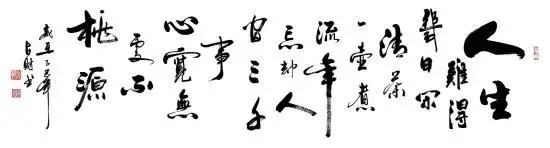 人生
難得
日閑
清茶
一壺煮
流年
忘却人
間三千
事
心寬無
處不
桃源
乙巳年
書